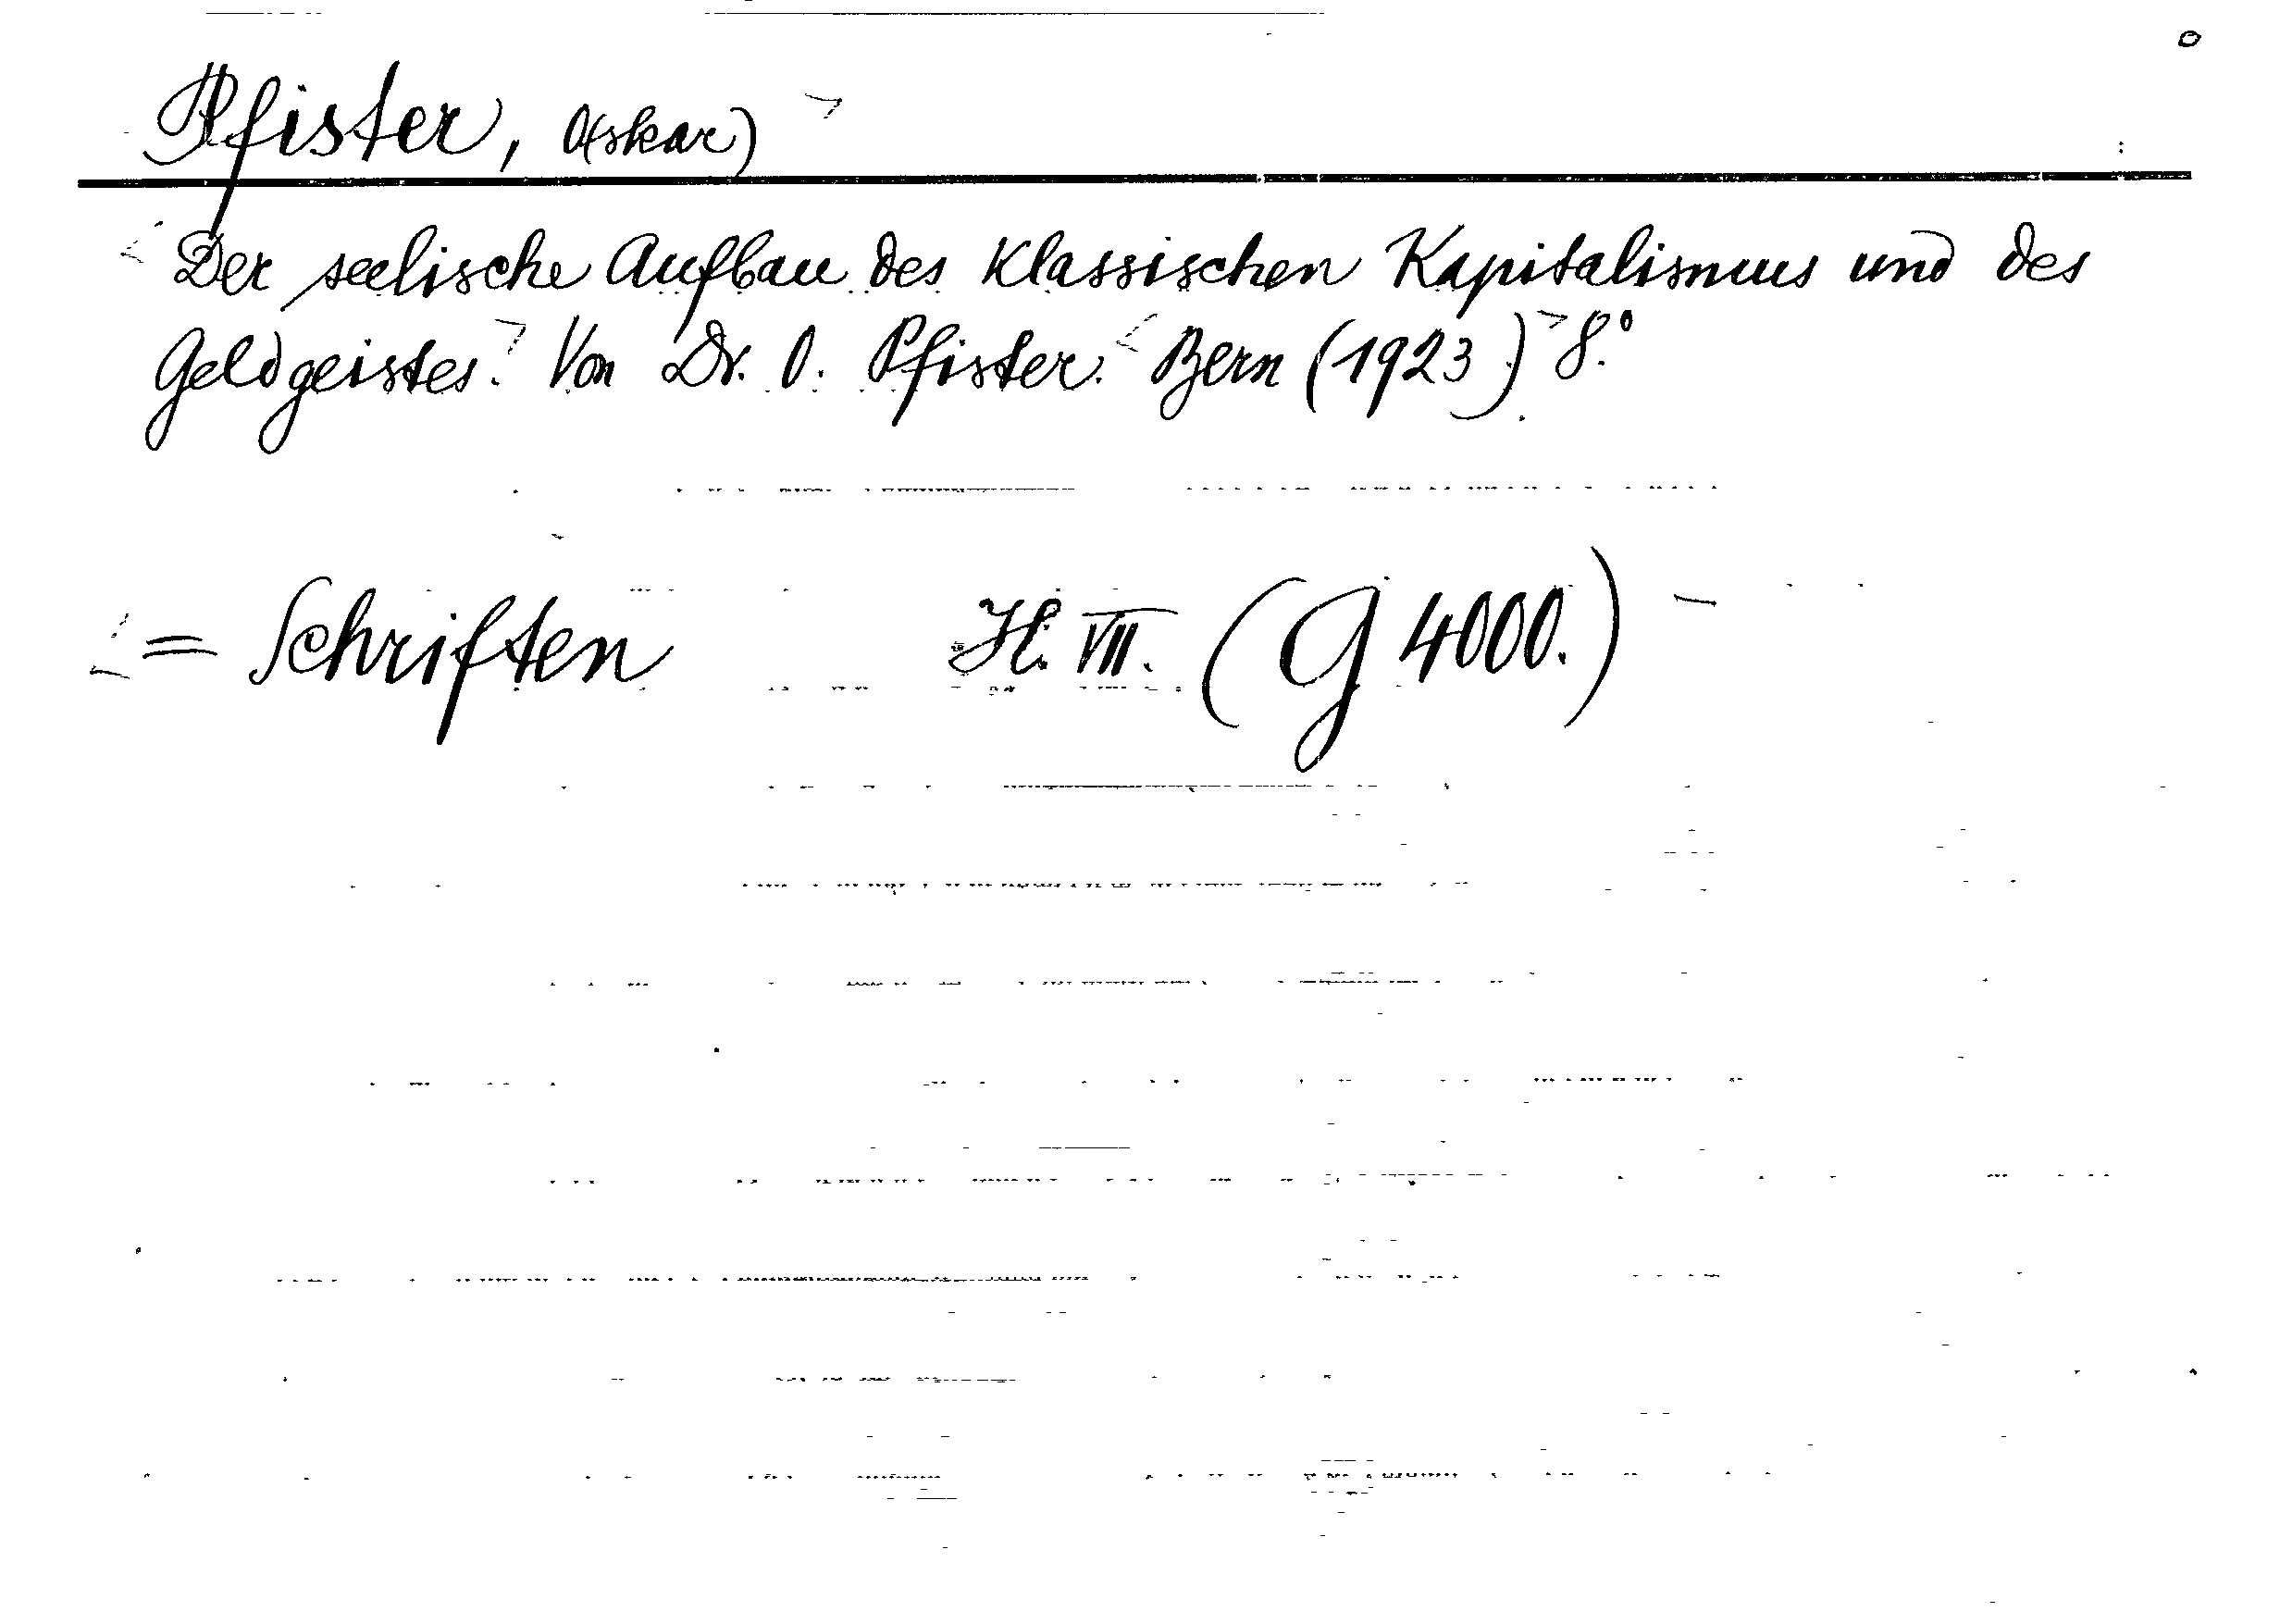 Pfister, O(skar)
Der seelische Aufbau des klassischen Kapitalismus und des
Geldgeistes. Von Dr. O. Pfister. Bern (1923) 8.°
= Schriften H. VII. (G 4000.)